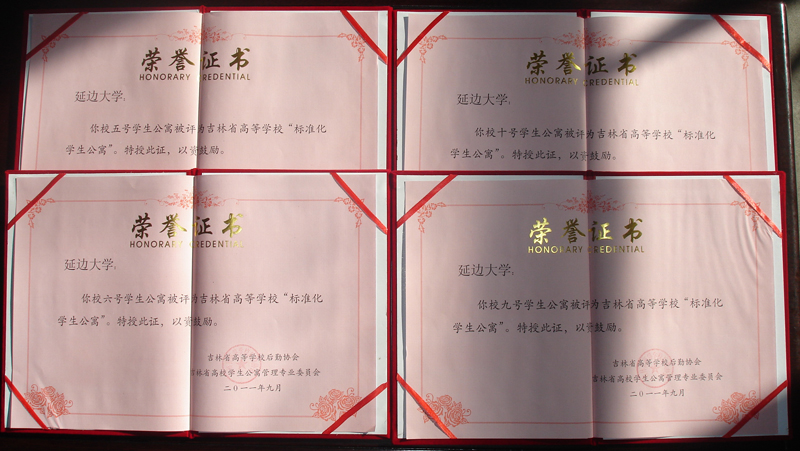 荣誉证书
HONORARY CREDENTIAL
延边大学:
你校五号学生公寓被评为吉林省高等学校“标准化
学生公寓”。特授此证，以资鼓励。
荣誉证书
HONORARY CREDENTIAL
延边大学:
你校十号学生公寓被评为吉林省高等学校“标准化
学生公寓”。特授此证，以资鼓励。
荣誉证书
HONORARY CREDENTIAL
延边大学:
你校六号学生公寓被评为吉林省高等学校“标准化
学生公寓”。特授此证，以资鼓励。
吉林省高等学校后勤协会
吉林省高校学生公寓管理专业委员会
二〇一一年九月
荣誉证书
HONORARY CREDENTIAL
延边大学:
你校九号学生公寓被评为吉林省高等学校“标准化
学生公寓”。特授此证，以资鼓励。
吉林省高等学校后勤协会
吉林省高校学生公寓管理专业委员会
二〇一一年九月